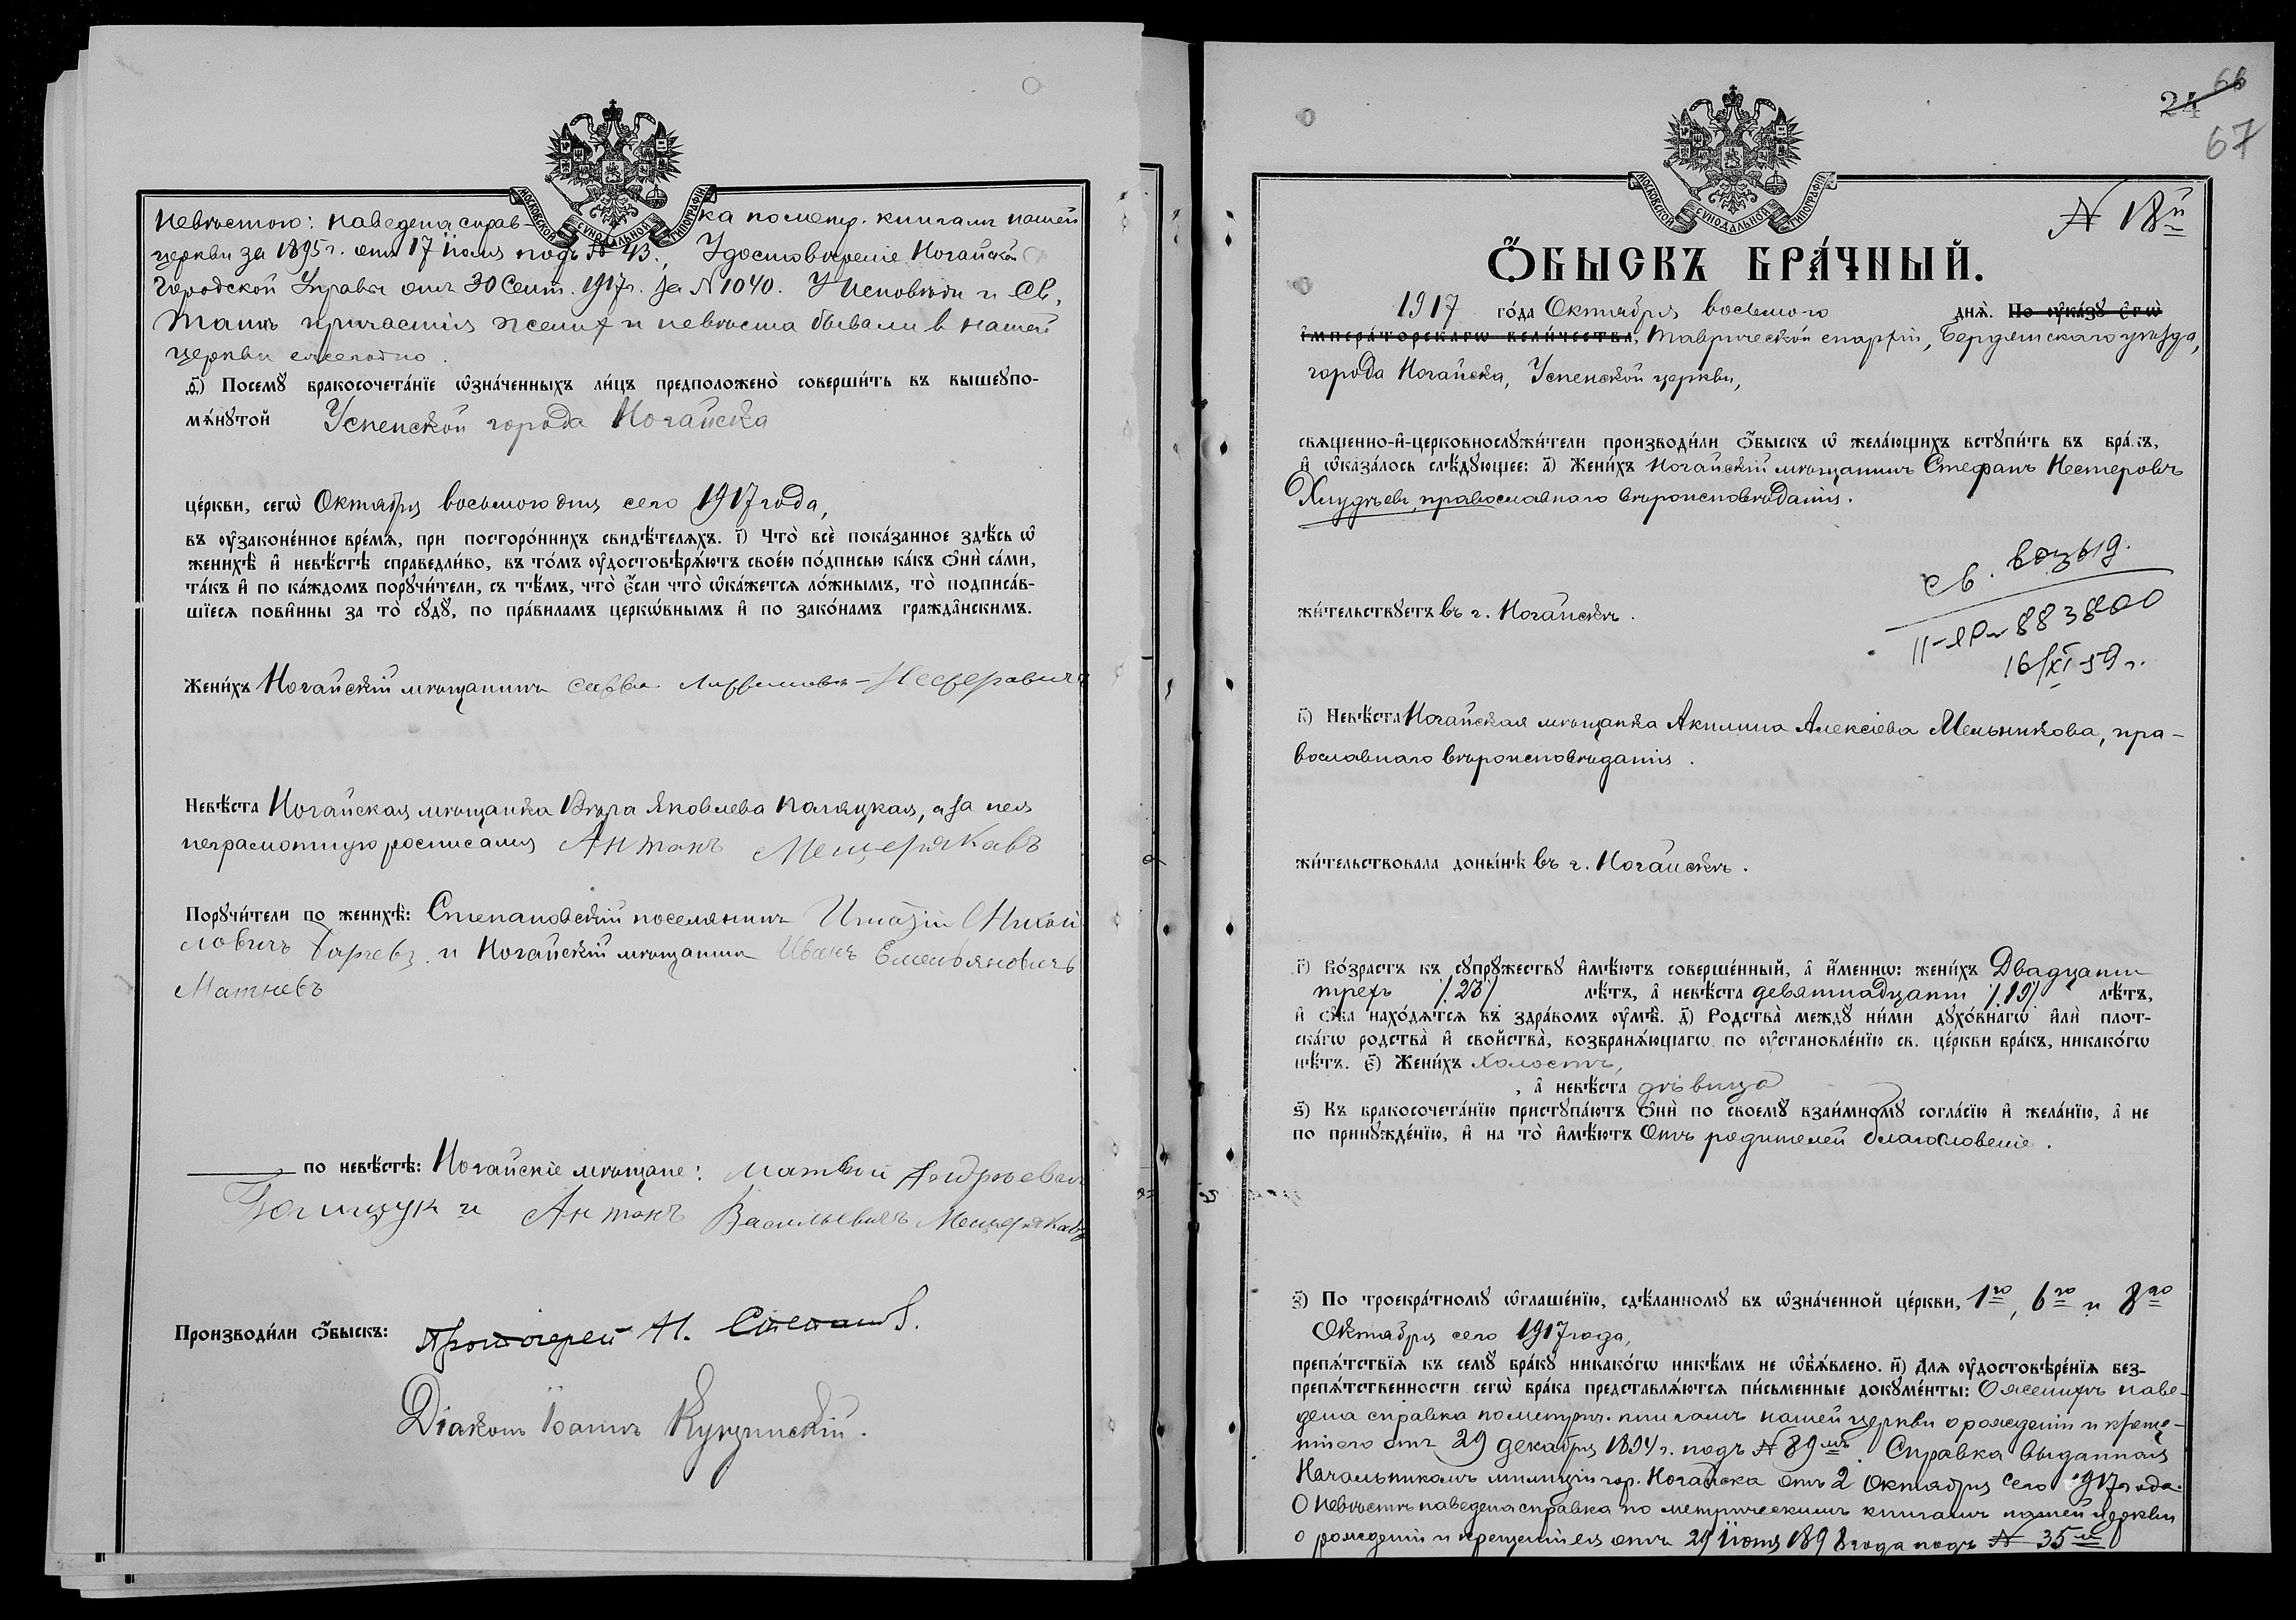 МОСКОВСКОЙ СѴНОДАЛЬНОЙ ТИПОГРАФІИ
невѣстою: наведена справка по метр. книгамъ нашей
церкви за 1895 г. отъ 17 Іюля подъ № 43., Удостовѣреніе Ногайской
Городской Управы отъ 30 Сент. 1917 г. за № 1040. У Исповѣди и Св.
Таинъ причастія женихъ и невѣста бывали в нашей
церкви ежегодно.
ѳ҃) Посемꙋ̀ бракосочета́нїе ѡ҆зна́ченныхъ ли́цъ предположено̀ соверши́ть въ вышеꙋпо-
мѧ́нꙋтой Успенской города Ногайска
це́ркви, сегѡ̀ Октября восьмого дня сего 1917 года,
въ ᲂу҆законе́нное вре́мѧ, при посторо́ннихъ свидѣ́телѧхъ. і҃) Что̀ всѐ пока́занное здѣ́сь ѡ҆
женихѣ̀ и҆ невѣ́стѣ справедли́во, въ то́мъ ᲂу҆достовѣрѧ́ютъ свое́ю по́дписью ка́къ ѻ҆нѝ са́ми,
та́къ и҆ по ка́ждомъ порꙋчи́тели, съ тѣ́мъ, что̀ є҆́сли что̀ ѡ҆ка́жетсѧ ло́жнымъ, то̀ подписа́в-
шїесѧ пови́нны за то̀ сꙋдꙋ̀, по пра́виламъ церкѡ́внымъ и҆ по зако́намъ гражда́нскимъ.
Жени́хъ Ногайскій мѣщанинъ Савва
Невѣ́ста Ногайская мѣщанка Вѣра Яковлева Пагацкая, а за нея
неграмотную росписался Антонъ Мещеряковъ
Порꙋчи́тели по женихѣ̀: Степановскій поселянинъ Игнатій Михай
ловичъ и Ногайскій мѣщанинъ Иванъ Емельяновичъ
Матневъ
по невѣ́стѣ: Ногайскіе мѣщане: Матвей Андреевичъ
и Антонъ Васильевичъ Мещеряковъ
Производи́ли ѻ҆́быскъ: Протоіерей Н. Степановъ.
Діаконъ Іоаннъ Кущинскій.
24 66
67
МОСКОВСКОЙ СѴНОДАЛЬНОЙ ТИПОГРАФІИ
№ 18й
Ѻ҆́БЫСКЪ БРА́ЧНЫЙ.
1917 го́да Октября восьмого днѧ̀. По ᲂу҆ка́зꙋ є҆гѡ̀
и҆мпера́торскагѡ вели́чества, Таврической епархіи, Бердянскаго уѣзда,
города Ногайска, Успенской церкви,
свѧще́нно-и҆-церковнослꙋжи́тели производи́ли ѻ҆́быскъ ѡ҆ жела́ющихъ встꙋпи́ть въ бра́къ,
и҆ ѡ҆каза́лось слѣ́дꙋющее: а҃) Жени́хъ Ногайскій мѣщанинъ Стефанъ Нестеровъ
Хмудѣевъ, православнаго вѣроисповѣданія.
св. выд.
II-ЯР № 883800
16/XI 59 г.
жи́тельствꙋетъ въ г. Ногайскѣ.
в҃) Невѣ́ста Ногайская мѣщанка Акилина Алексіева Мельникова, пра-
вославнаго вѣроисповѣданія.
жи́тельствовала доны́нѣ въ г. Ногайскѣ.
г҃) Во́зрастъ къ сꙋпрꙋ́жествꙋ и҆мѣ́ютъ соверше́нный, а҆ и҆́менно: жени́хъ Двадцати
трехъ /23/ лѣ́тъ, а҆ невѣ́ста девятнадцати /19/ лѣ́тъ,
и҆ ѻ҆́ба нахо́дѧтсѧ въ здра́вомъ ᲂу҆мѣ̀. д҃) Родства̀ междꙋ̀ ни́ми дꙋхо́внагѡ и҆лѝ плот-
ска́гѡ родства̀ и҆ сво́йства̀, возбранѧ́ющагѡ по ᲂу҆становле́нїю св. це́ркви бра́къ, никако́гѡ
нѣ́тъ. є҃) Жени́хъ холостъ,
, а҆ невѣ́ста дѣвица
ѕ҃) Къ бракосочета́нїю пристꙋпа́ютъ ѻ҆нѝ по своемꙋ̀ взаи́мномꙋ согла́сїю и҆ жела́нїю, а҆ не
по принꙋжде́нїю, и҆ на то̀ и҆мѣ́ютъ отъ родителей благословеніе.
з҃) По троекра́тномꙋ ѡ҆глаше́нїю, сдѣ́ланномꙋ въ ѡ҆зна́ченной це́ркви, 1го, 6го и 8го
Октября сего 1917 года,
препѧ́тствїѧ къ семꙋ̀ бра́кꙋ никако́гѡ никѣ́мъ не ѡ҆б̾ѧ́влено. и҃) Длѧ ᲂу҆достовѣре́нїѧ без-
препѧ́тственности сегѡ̀ бра́ка представлѧ́ютсѧ пи́сьменные докꙋме́нты: О женихѣ наве-
дена справка по метрич. книгамъ нашей церкви о рожденіи и креще-
ніи его отъ 29 декабря 1894 г. подъ № 89мъ. Справка выданная
Начальникомъ милиціи гор. Ногайска отъ 2 Октября сего 1917 года.
О невѣстѣ наведена справка по метрическимъ книгамъ нашей церкви
о рожденіи и крещеніи ея отъ 29 Іюня 1898 года подъ № 35м